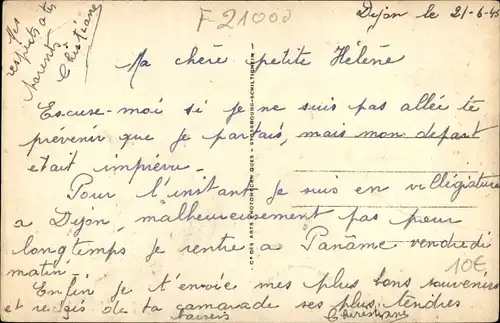 F 21000
Dijon le 21-6-45
Mes
respects à tes
parents
Christiane
Ma chère petite Hélène
Escuse-moi si je ne suis pas allée te
prévenir que je partais, mais mon départ
était imprévu.
Pour l'instant je suis en villégiature
a Dijon, malheureusement pas pour
longtemps je rentre a Paname vendredi
matin.
Enfin je t'envoie mes plus bons souvenirs
et reçois de ta camarade ses plus tendres
baisers
Christiane
10€
- Cie DES ARTS PHOTOMECANIQUES - STRASBOURG-SCHILTIGHEIM -